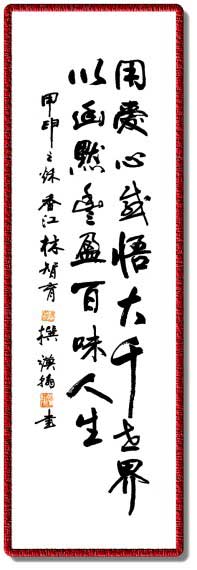 用爱心感悟大千世界
以幽默丰盈百味人生
甲申之秋香江林智育撰 书